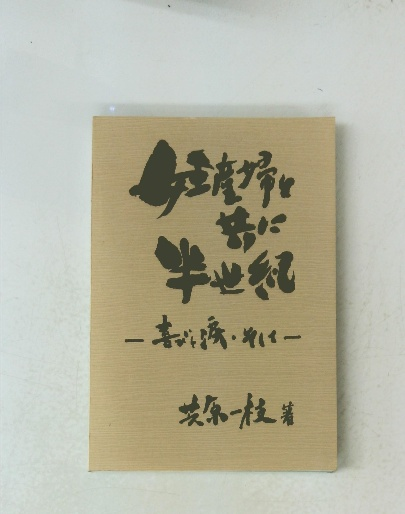 妊産婦と
共に
半世紀
―喜びと涙・そして―
共原一枝 著